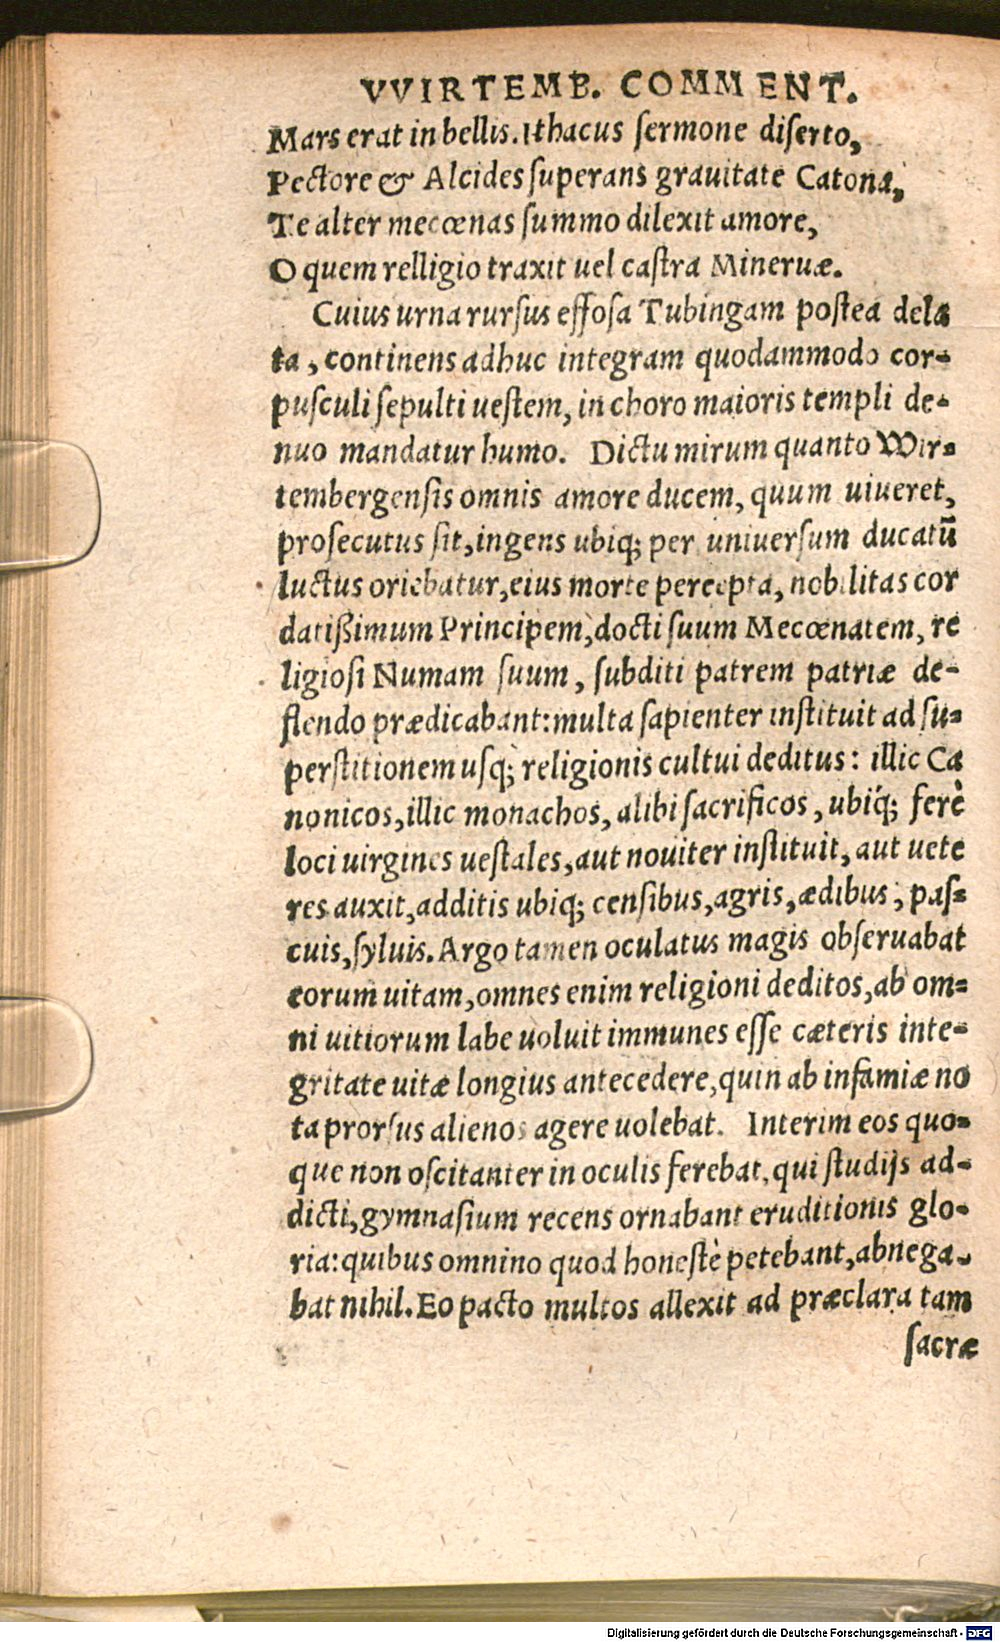 VVIRTEMB. COMMENT.
Mars erat in bellis. Ithacus ſermone diſerto,
Pectore & Alcides ſuperans grauitate Catona,
Te alter mecœnas ſummo dilexit amore,
O quem relligio traxit uel caſtra Mineruæ.
Cuius urna rurſus effoſa Tubingam poſtea dela
ta, continens adhuc integram quodammodo cor-
puſculi ſepulti ueſtem, in choro maioris templi de-
nuo mandatur humo. Dictu mirum quanto Wir-
tembergenſis omnis amore ducem, quum uiueret,
proſecutus ſit, ingens ubiq; per uniuerſum ducatū
luctus oriebatur, eius morte percepta, nobilitas cor
datißimum Principem, docti ſuum Mecœnatem, re
ligioſi Numam ſuum, ſubditi patrem patriæ de-
flendo prædicabant: multa ſapienter inſtituit ad ſu-
perſtitionem uſq; religionis cultui deditus: illic Ca
nonicos, illic monachos, alibi ſacrificos, ubiq́; ferè
loci uirgines ueſtales, aut nouiter inſtituit, aut uete
res auxit, additis ubiq; cenſibus, agris, ædibus, paſ-
cuis, ſyluis. Argo tamen oculatus magis obſeruabat
eorum uitam, omnes enim religioni deditos, ab om-
ni uitiorum labe uoluit immunes eſſe cæteris inte-
gritate uitæ longius antecedere, quin ab infamiæ no
ta prorſus alienos agere uolebat. Interim eos quo-
que non oſcitanter in oculis ferebat, qui ſtudijs ad-
dicti, gymnaſium recens ornabant eruditionis glo-
ria: quibus omnino quod honeſtè petebant, abnega-
bat nihil. Eo pacto multos allexit ad præclara tam
ſacræ
Digitalisierung gefördert durch die Deutsche Forschungsgemeinschaft - DFG